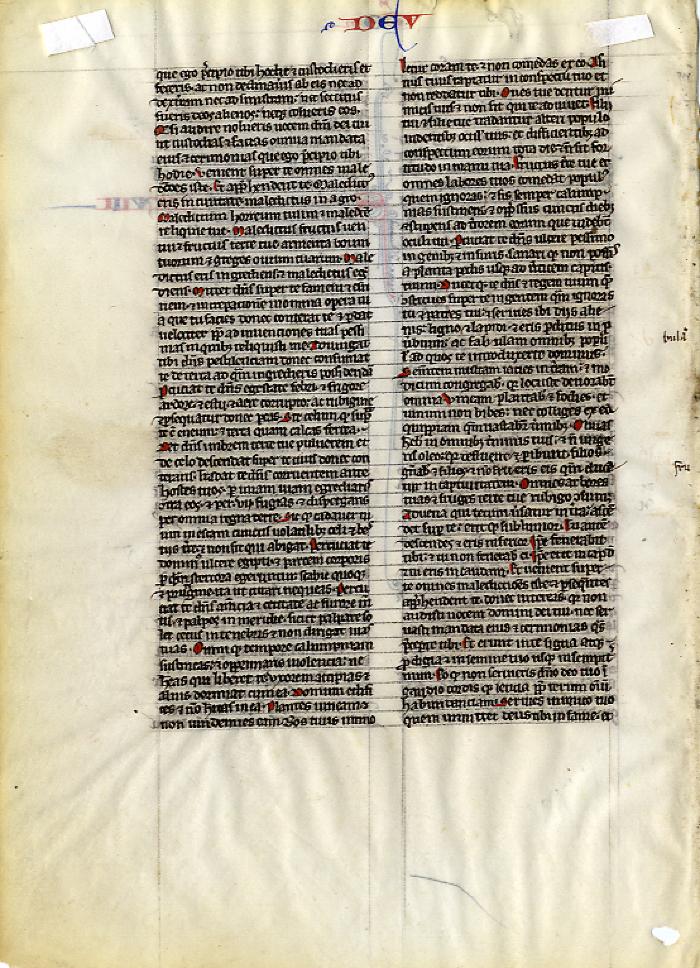 DEV
que ego p̄cipio tibi hodie ⁊ custodieris et
feceris. ac non declinaueris ab eis nec ad
dexteram nec ad sinistram. nec secutus
fueris deos alienos. neq; colueris eos.
Qd̓ si audire nolueris uocem dn̄i dei tui
ut custodias ⁊ facias omnia mandata
eius ⁊ cerimonias que ego p̄cipio tibi
hodie. Venient super te omnes male
dc̄ones iste. Et app̄hendent te. Maledict̓
eris in ciuitate. maledictus in agro.
Maledictum horreum tuum. ⁊ maledc̄e
reliquie tue. Maledictus fructus uen
tris ⁊ fructus terre tue armenta boum
tuorum ⁊ greges ouium tuarum. Male
dictus eris ingrediens. ⁊ maledictus eg̓
diens. Mittet dn̄s super te famem ⁊ esu
riem. ⁊ increpacionem in omnia opera tu
a que tu facies donec conterat te ⁊ p̄dat
uelociter pp̄ ad inuenciones tuas pessi
mas in quib; reliquisti me. Adiungat
tibi dn̄s pestilenciam donec consumat
te de terra ad qm̄ ingredieris possidendā
Percuciat te dn̄s egestate febri ⁊ frigore
ardore ⁊ estu. ⁊ aere corrupto. ac rubigine
⁊ p̄sequatur donec p̄eas. Sit celum qd̓ sup̄
te ē eneum. ⁊ terra quam calcas ferrea.
Det dn̄s imbrem terre tue puluerem et
de celo descendat super te cinis donec con
teraris. tradat te dn̄s corruentem ante
hostes tuos. p̄ unam uiam egrediaris
cont̓ eos ⁊ per vii fugias ⁊ dispergaris
per omnia regna terre. Sitq; cadauer tu
um in escam cunctis uolatilib; celi ⁊ bes
tiis t̓re ⁊ non sit qui abigat. Percuciat te
domin̓ ulcere egypti ⁊ partem corporis
p̄ quā stercora egeruntur scabie quoq;
⁊ prurigine ita ut curari nequeas. Percu
ciat te dn̄s amencia ⁊ cecitate ac furore m̄
tis ⁊ palpes in meridie. sicut palpare so
let cecus in tenebris ⁊ non dirigas uias
tuas. Omniq; tempore calumpniam
sustineas. ⁊ opprimaris uiolencia. ne
h̓eas qui liberet te. Vxorem accipias ⁊
alius dormiat cum ea. Domum edifi
ces ⁊ nō h̓ites in ea. Plantes uineam ⁊
non uindemies eam. Bos tuus immo
letur coram te ⁊ non comedas ex eo. Asi
nus tuus rapiatur in conspectu tuo et
non reddatur tibi. Oues tue dentur ini
micis tuis ⁊ non sit qui te adiuuet. Filii
tui ⁊ filie tue tradantur alteri populo
uidentib; oculis tuis. et deficientib; ad
conspectum eorum tota die ⁊ n̄ sit for
titudo in manu tua. Fructus t̓re tue et
omnes labores tuos comedat popul̓
quem ignoras. ⁊ sis semper calump
nias sustinens. ⁊ opp̄ssus cunctis dieb;
⁊ stupens ad t̓rorem eorum que uidebt̓
oculi tui. Percuciat te dn̄s ulcere pessimo
in genib; ⁊ in suris sanariq; non possis
a planta pedis usq; ad uerticem capitis
tui. Ducetq; te dn̄s ⁊ regem tuum qm̄
ostitues super te in gentem qm̄ ignoras
tu ⁊ patres tui. ⁊ seruies ibi diis alie
nis. ligno ⁊ lapidi. ⁊ eris p̄ditus in p̄
uerbium. ac fabulam omnib; popu
l̓ ad quos te introduxerit dominus.
Sementem multam iacies in t̓ram. ⁊ mo
dicum congregab̓. qr̄ locuste deuorabt̓
omnia. Vineam plantab̓ ⁊ fodies. et
uinum non bibes. nec colliges ex ea
quippiam qm̄ uastabit̓ u̓mib;. Oliuas
h̓eb̓ in omnib; t̓minis tuis. ⁊ n̄ unge
ris oleo. qr̄ defluent ⁊ p̄ibunt. filios
gn̄ab̓ ⁊ filias ⁊ nō fru̓eris eis. qm̄ ducē
tur in captiuitatem. Omnes arbores
tuas ⁊ fruges terre tue rubigo ɔsumet
Aduena qui tecum u̓satur in t̓ra. ascen
det sup̄ te. eritq; sublimior. Tu autem
descendes ⁊ eris inferior. Ip̄e fenerabit
tibi. ⁊ tu non fenerab̓ ei. Ip̄e erit in cap̄d
⁊ tu eris in caudam. Et uenient super
te omnes maledicciones iste. ⁊ p̄sequentes
app̄hendent te donec intereas. qr̄ non
audisti uocem domini dei tui nec ser
uasti mandata eius ⁊ cerimonias qs̄
p̄cepit tibi. Et erunt in te signa atq;
p̄digia. ⁊ in semine tuo usq; in sempit̓
num. Eo qd̓ non seruieris dn̄o deo tuo ī
gaudio cordis q; leticia pp̄ rerum om̄iū
habundanciam. Seruies inimico tuo
quem inmittet deus tibi in fame. et